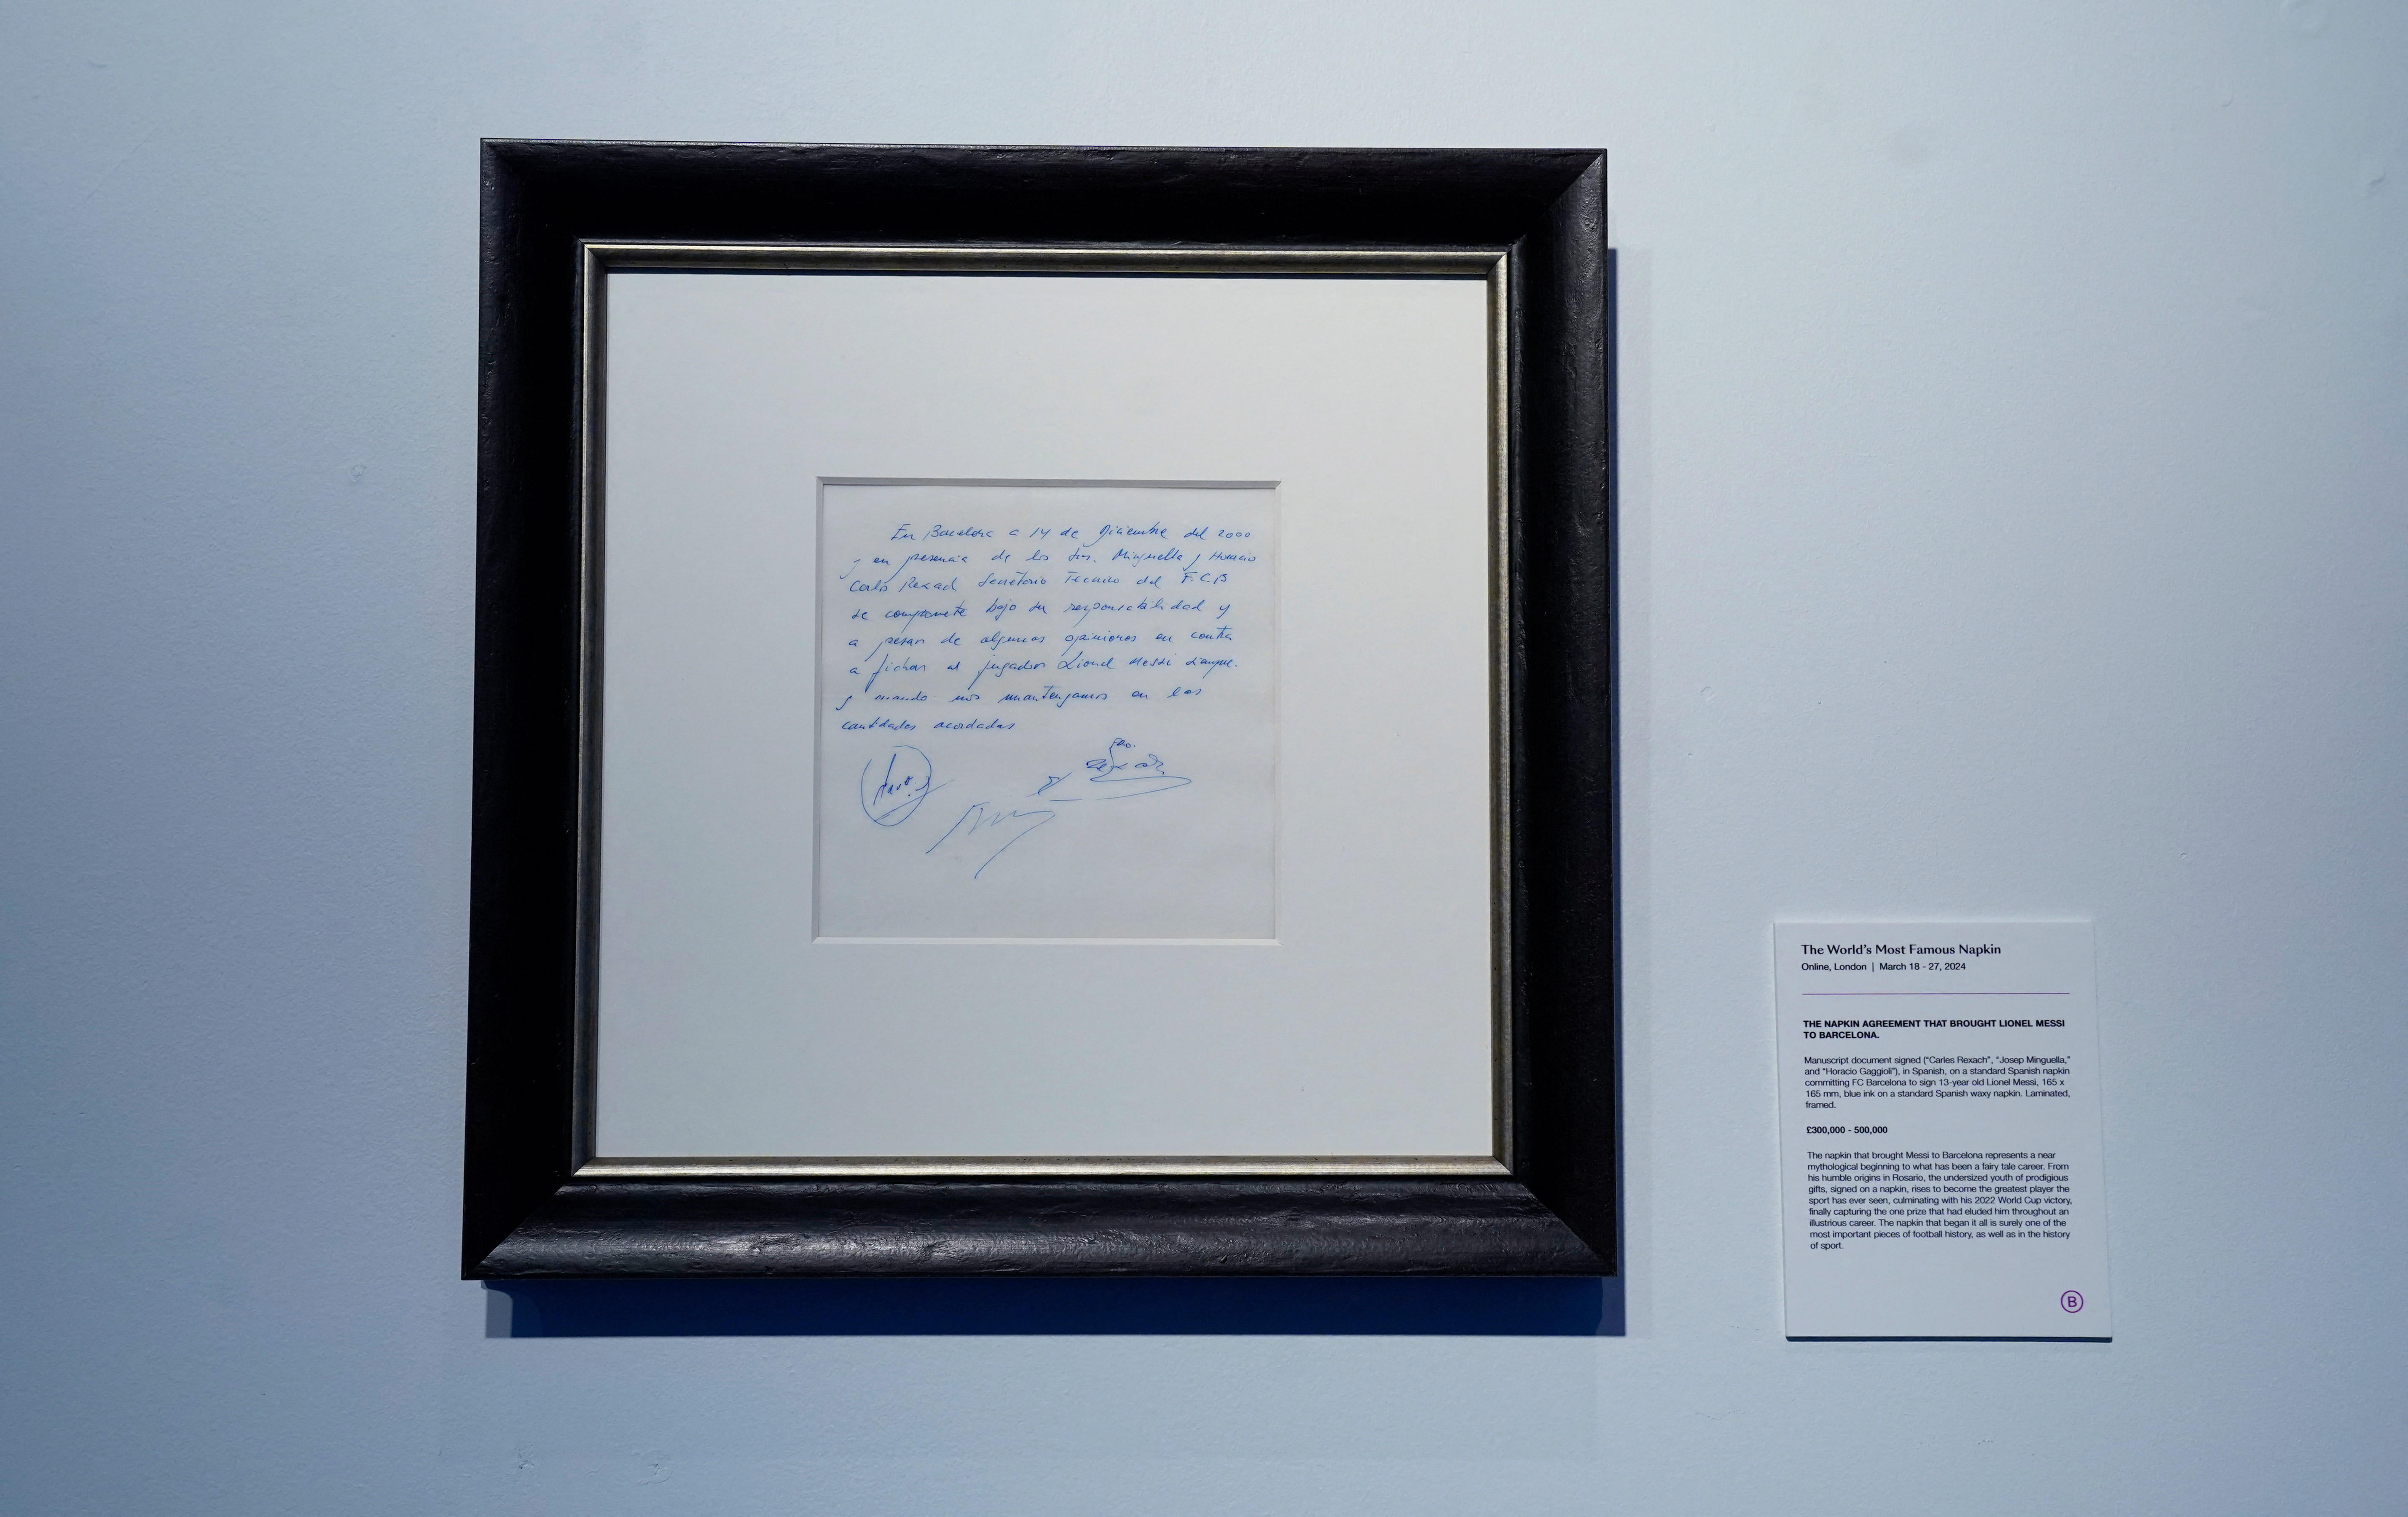 En Barcelona a 14 de Diciembre del 2000
y en presencia de los Sres. Minguella y Horacio
Carlos Rexach Secretario Tecnico del F.C.B
se compromete bajo su responsabilidad y
a pesar de algunas opiniones en contra
a fichar al jugador Lionel Messi siempre
y cuando nos mantengamos en las
cantidades acordadas
The World’s Most Famous Napkin
Online, London | March 18 - 27, 2024
THE NAPKIN AGREEMENT THAT BROUGHT LIONEL MESSI
TO BARCELONA.
Manuscript document signed (“Carles Rexach”, “Josep Minguella,”
and “Horacio Gaggioli”), in Spanish, on a standard Spanish napkin
committing FC Barcelona to sign 13-year old Lionel Messi, 165 x
165 mm, blue ink on a standard Spanish waxy napkin. Laminated,
framed.
£300,000 - 500,000
The napkin that brought Messi to Barcelona represents a near
mythological beginning to what has been a fairy tale career. From
his humble origins in Rosario, the undersized youth of prodigious
gifts, signed on a napkin, rises to become the greatest player the
sport has ever seen, culminating with his 2022 World Cup victory,
finally capturing the one prize that had eluded him throughout an
illustrious career. The napkin that began it all is surely one of the
most important pieces of football history, as well as in the history
of sport.
B